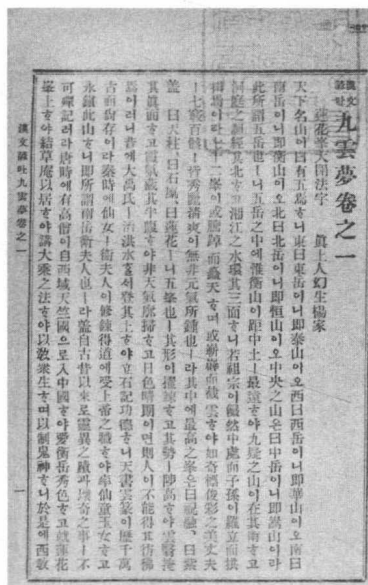 漢文諺吐 九雲夢卷之一
蓮花峯大開法宇 眞上人幻生楊家
天下名山이曰有五焉ᄒᆞ니東曰東岳이니卽泰山이오西曰西岳이니卽華山이오南曰
南岳이니卽衡山이오北曰北岳이니卽恒山이오中央之山은曰中岳이니卽嵩山이라
此所謂五岳也ㅣ니五岳之中에惟衡山이距中土ㅣ最遠ᄒᆞ야九疑之山이在其南ᄒᆞ고
洞庭之湖經其北ᄒᆞ고湘江之水環其三面ᄒᆞ니若祖宗이儼然中處而子孫이羅立而拱
揖焉이라七十二峯이或騰踔而矗天ᄒᆞ며或嶄嵓而截雲ᄒᆞ야如奇標俊彩之美丈夫
ㅣ七竅百骸ㅣ皆秀麗淸爽이無非元氣所鍾也ㅣ라其中에最高之峯은曰祝融、曰紫
蓋、曰天柱、曰石廩、曰蓮花ㅣ니五峯也ㅣ其形이擢竦ᄒᆞ고其勢ㅣ陟高ᄒᆞ야雲翳掩
其眞面ᄒᆞ고霞氣藏其半腹ᄒᆞ야非天氣廓掃ᄒᆞ고日色晴朗이면則人이不能得其彷彿
焉이러라昔에大禹氏ㅣ治洪水ᄒᆞ시고登其上ᄒᆞ야立石記功德ᄒᆞ니天書雲篆이歷千萬
古而尙存이라秦時에仙女ㅣ衛夫人이修鍊得道에受上帝之職ᄒᆞ야率仙童玉女ᄒᆞ고
永鎭此山ᄒᆞ니卽所謂南岳衛夫人也ㅣ라盖自古昔以來로靈異之蹟과瓌奇之事ㅣ不
可殫記러라唐時에有高僧이自西域天竺國으로入中國ᄒᆞ야愛衡岳秀色ᄒᆞ고就蓮花
峯上ᄒᆞ야結草庵以居ᄒᆞ야講大乘之法ᄒᆞ야以敎衆生ᄒᆞ며以制鬼神ᄒᆞ니於是에西敎
漢文諺吐九雲夢卷之一
一